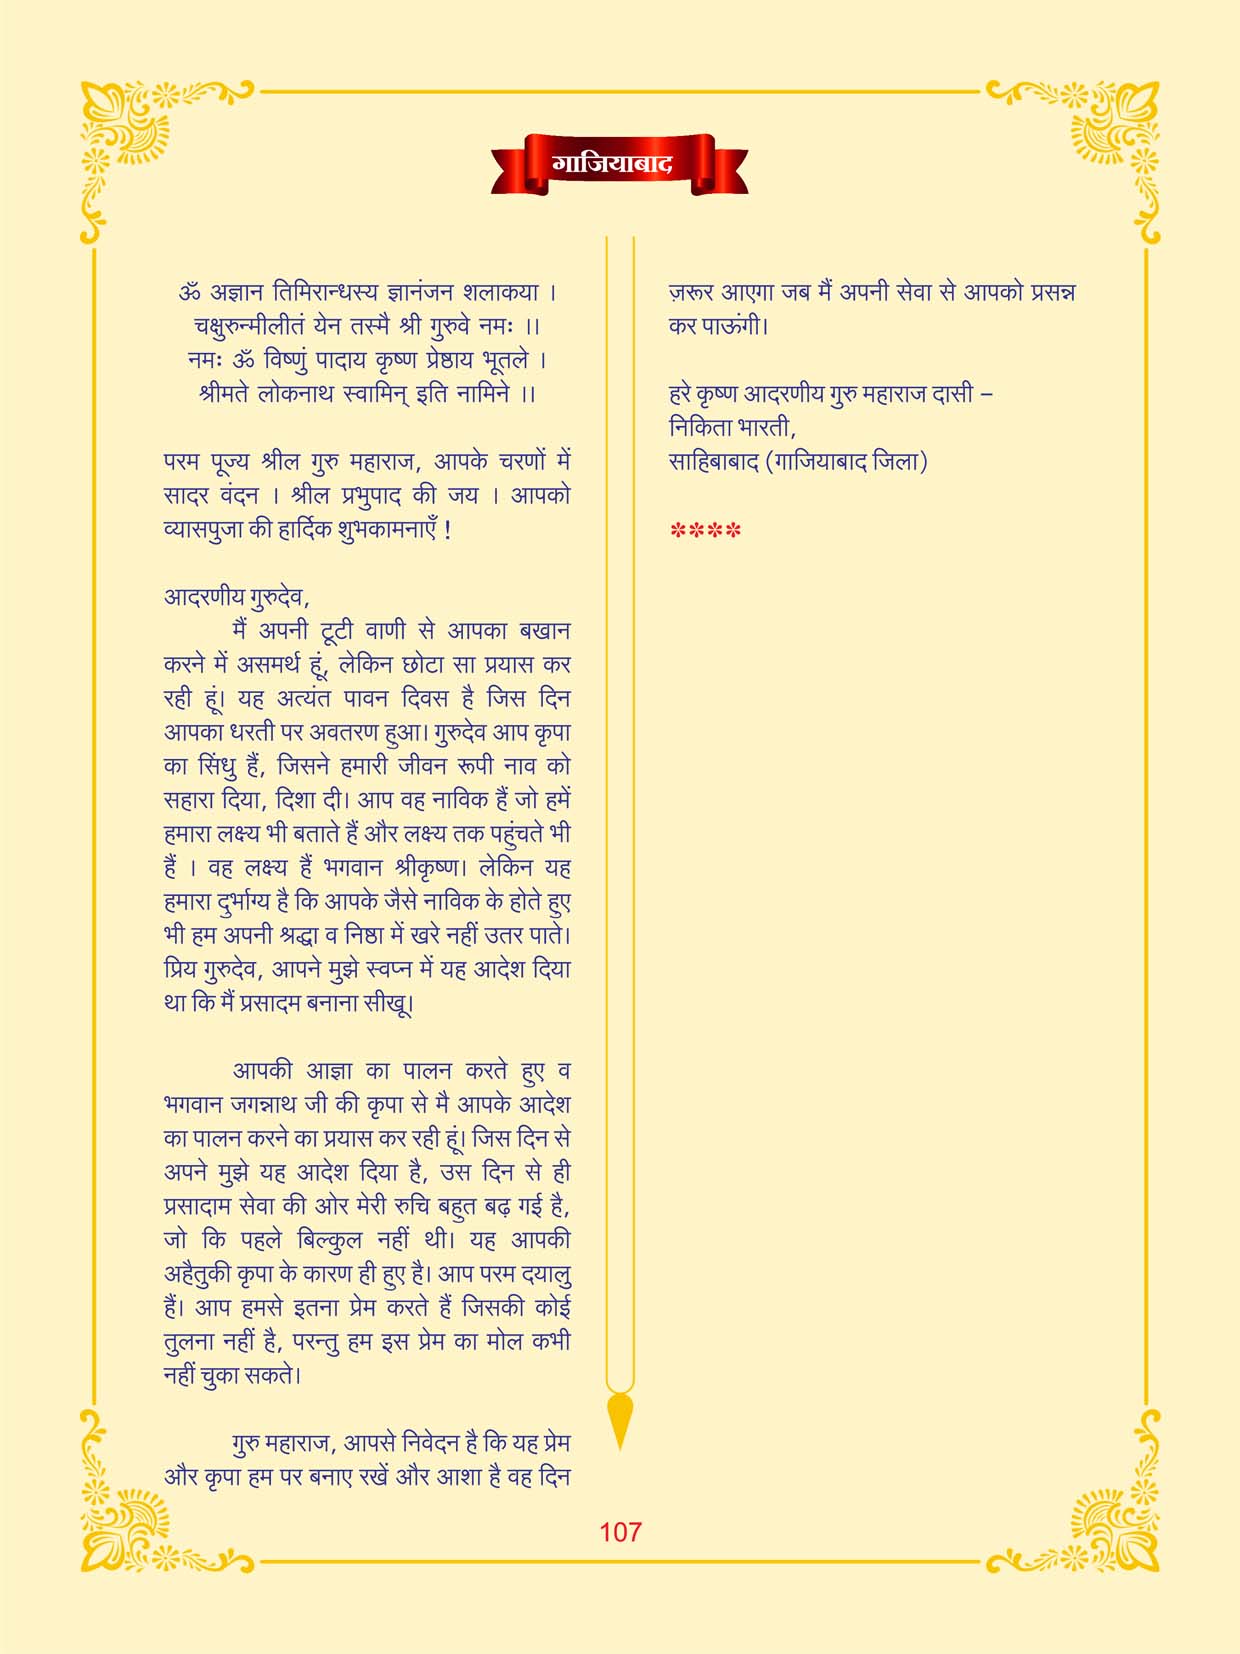 गाजियाबाद
ॐ अज्ञान तिमिरान्धस्य ज्ञानंजन शलाकया ।
चक्षुरुन्मीलीतं येन तस्मै श्री गुरुवे नमः ।।
नमः ॐ विष्णुं पादाय कृष्ण प्रेष्ठाय भूतले ।
श्रीमते लोकनाथ स्वामिन् इति नामिने ।।
परम पूज्य श्रील गुरु महाराज, आपके चरणों में
सादर वंदन । श्रील प्रभुपाद की जय । आपको
व्यासपुजा की हार्दिक शुभकामनाएँ !
आदरणीय गुरुदेव,
मैं अपनी टूटी वाणी से आपका बखान
करने में असमर्थ हूं, लेकिन छोटा सा प्रयास कर
रही हूं। यह अत्यंत पावन दिवस है जिस दिन
आपका धरती पर अवतरण हुआ। गुरुदेव आप कृपा
का सिंधु हैं, जिसने हमारी जीवन रूपी नाव को
सहारा दिया, दिशा दी। आप वह नाविक हैं जो हमें
हमारा लक्ष्य भी बताते हैं और लक्ष्य तक पहुंचते भी
हैं । वह लक्ष्य हैं भगवान श्रीकृष्ण। लेकिन यह
हमारा दुर्भाग्य है कि आपके जैसे नाविक के होते हुए
भी हम अपनी श्रद्धा व निष्ठा में खरे नहीं उतर पाते।
प्रिय गुरुदेव, आपने मुझे स्वप्न में यह आदेश दिया
था कि मैं प्रसादम बनाना सीखू।
आपकी आज्ञा का पालन करते हुए व
भगवान जगन्नाथ जी की कृपा से मै आपके आदेश
का पालन करने का प्रयास कर रही हूं। जिस दिन से
अपने मुझे यह आदेश दिया है, उस दिन से ही
प्रसादाम सेवा की ओर मेरी रुचि बहुत बढ़ गई है,
जो कि पहले बिल्कुल नहीं थी। यह आपकी
अहैतुकी कृपा के कारण ही हुए है। आप परम दयालु
हैं। आप हमसे इतना प्रेम करते हैं जिसकी कोई
तुलना नहीं है, परन्तु हम इस प्रेम का मोल कभी
नहीं चुका सकते।
गुरु महाराज, आपसे निवेदन है कि यह प्रेम
और कृपा हम पर बनाए रखें और आशा है वह दिन
ज़रूर आएगा जब मैं अपनी सेवा से आपको प्रसन्न
कर पाऊंगी।
हरे कृष्ण आदरणीय गुरु महाराज दासी –
निकिता भारती,
साहिबाबाद (गाजियाबाद जिला)
****
107